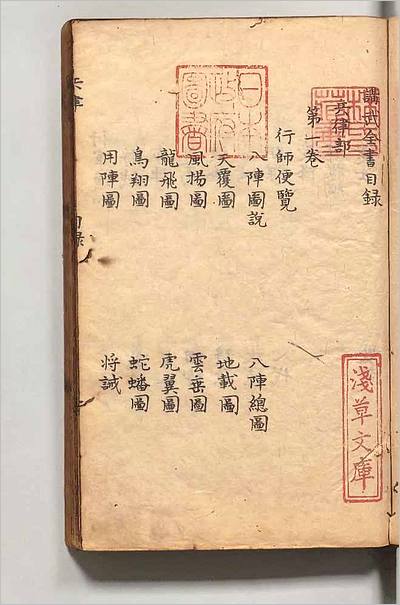 講武全書目録
兵律部
第一卷
行師便覽
八陣圖説
八陣總圖
天覆圖
地載圖
風揚圖
雲垂圖
龍飛圖
虎翼圖
鳥翔圖
蛇蟠圖
用陣圖
将誡
日本
政府
圖書
淺草文庫